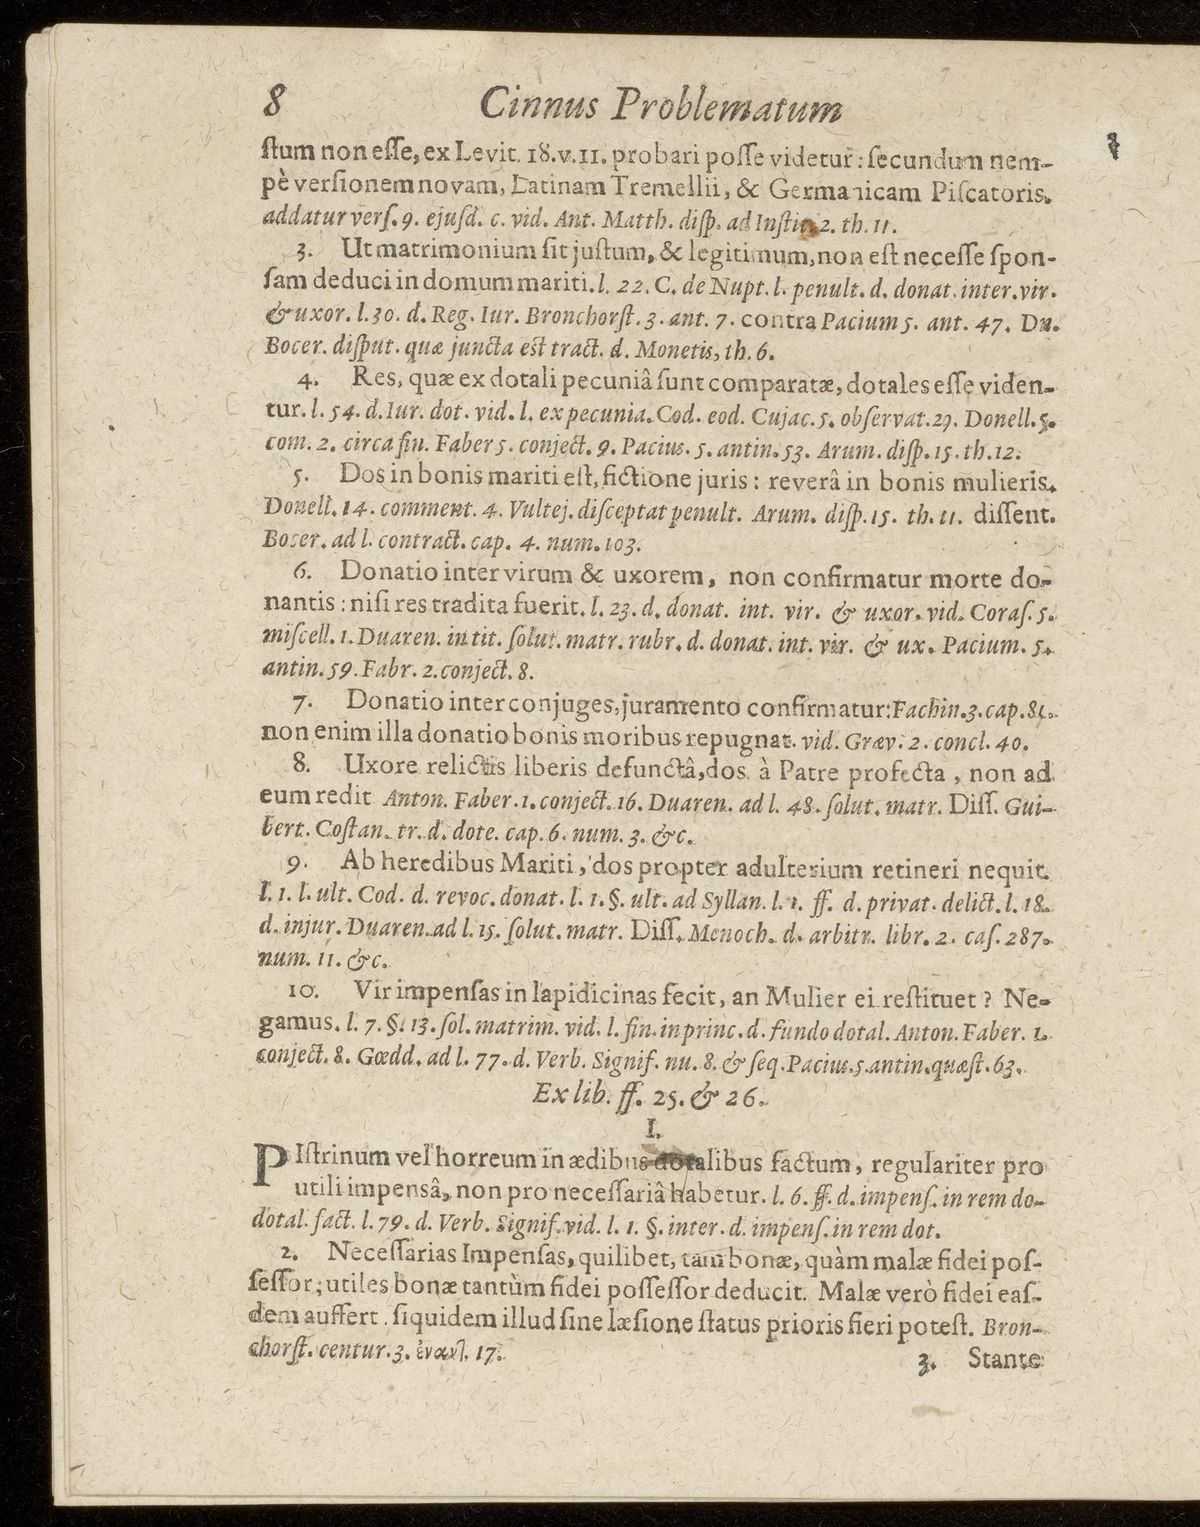 8 Cinnus Problematum
ſtum non eſſe, ex Levit. 18.v.11. probari poſſe videtur: ſecundum nem-
pè verſionem novam, Latinam Tremellii, & Germanicam Piſcatoris.
addatur verſ. 9. ejuſd. c. vid. Ant. Matth. diſp. ad Inſtit. 2. th. 11.
3. Ut matrimonium ſit juſtum, & legitimum, non eſt neceſſe ſpon-
ſam deduci in domum mariti. l. 22. C. de Nupt. l. penult. d. donat. inter. vir.
& uxor. l. 30. d. Reg. Iur. Bronchorſt. 3. ant. 7. contra Pacium 5. ant. 47. Dn.
Bocer. diſput. quæ juncta eſt tract. d. Monetis, th. 6.
4. Res, quæ ex dotali pecuniâ ſunt comparatæ, dotales eſſe viden-
tur. l. 54. d. Iur. dot. vid. l. ex pecunia. Cod. eod. Cujac. 5. obſervat. 29. Donell. 5.
com. 2. circa fin. Faber 5. conject. 9. Pacius. 5. antin. 53. Arum. diſp. 15. th. 12.
5. Dos in bonis mariti eſt, fictione juris: reverâ in bonis mulieris.
Donell. 14. comment. 4. Vultej. diſceptat penult. Arum. diſp. 15. th. 11. diſſent.
Bocer. ad l. contract. cap. 4. num. 103.
6. Donatio inter virum & uxorem, non confirmatur morte do-
nantis: niſi res tradita fuerit. l. 23. d. donat. int. vir. & uxor. vid. Coraſ. 5.
miſcell. 1. Duaren. in tit. ſolut. matr. rubr. d. donat. int. vir. & ux. Pacium. 5.
antin. 59. Fabr. 2. conject. 8.
7. Donatio inter conjuges, juramento confirmatur: Fachin. 3. cap. 81.
non enim illa donatio bonis moribus repugnat. vid. Græv. 2. concl. 40.
8. Uxore relictis liberis defunctâ, dos à Patre profecta, non ad
eum redit Anton. Faber. 1. conject. 16. Duaren. ad l. 48. ſolut. matr. Diſſ. Gui-
bert. Coſtan. tr. d. dote. cap. 6. num. 3. &c.
9. Ab heredibus Mariti, dos propter adulterium retineri nequit.
l. 1. l. ult. Cod. d. revoc. donat. l. 1. §. ult. ad Syllan. l. 1. ff. d. privat. delict. l. 18.
d. injur. Duaren. ad l. 15. ſolut. matr. Diſſ. Menoch. d. arbitr. libr. 2. caſ. 287.
num. 11. &c.
10. Vir impenſas in lapidicinas fecit, an Mulier ei reſtituet? Ne-
gamus. l. 7. §. 13. ſol. matrim. vid. l. fin. in princ. d. fundo dotal. Anton. Faber. 1.
conject. 8. Gœdd. ad l. 77. d. Verb. Signif. nu. 8. & ſeq. Pacius. 5. antin. quæſt. 63.
Ex lib. ff. 25. & 26.
I.
PIſtrinum vel horreum in ædibus dotalibus factum, regulariter pro
utili impensâ, non pro neceſſariâ habetur. l. 6. ff. d. impenſ. in rem do-
dotal. fact. l. 79. d. Verb. Signif. vid. l. 1. §. inter. d. impenſ. in rem dot.
2. Neceſſarias Impenſas, quilibet, tam bonæ, quàm malæ fidei poſ-
ſeſſor; utiles bonæ tantùm fidei poſſeſſor deducit. Malæ verò fidei eaſ-
dem auffert. ſiquidem illud ſine læſione ſtatus prioris fieri poteſt. Bron-
chorſt. centur. 3. 17.
3. Stante